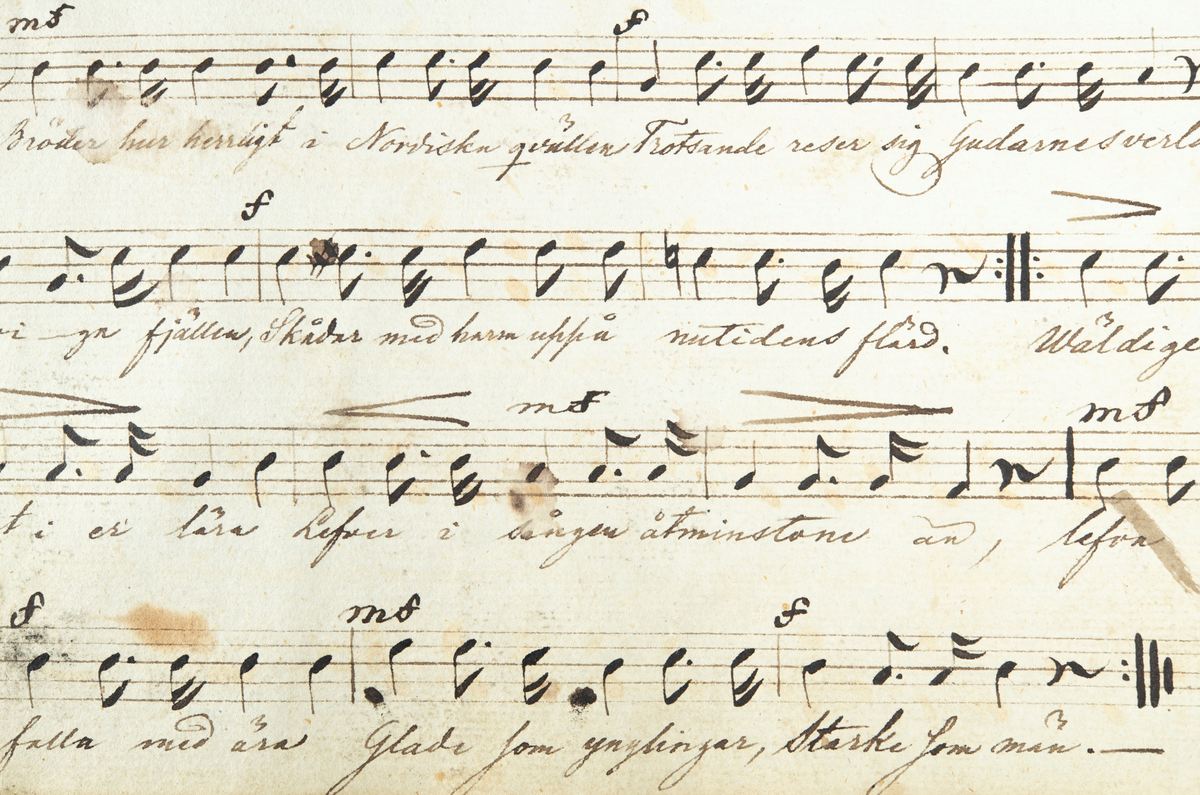 mf f
Bröder hur herrligt i Nordiska qvällen Trotsande reser sig Gudarnes verld
f
vi - ga fjällen, Skådar med harm uppå nutidens flärd. Wäldige
mf mf
t i er lära Lefver i sången åtminstone än, lefva
f mf f
falla med ära Glade som ynglingar, Starke som män. —